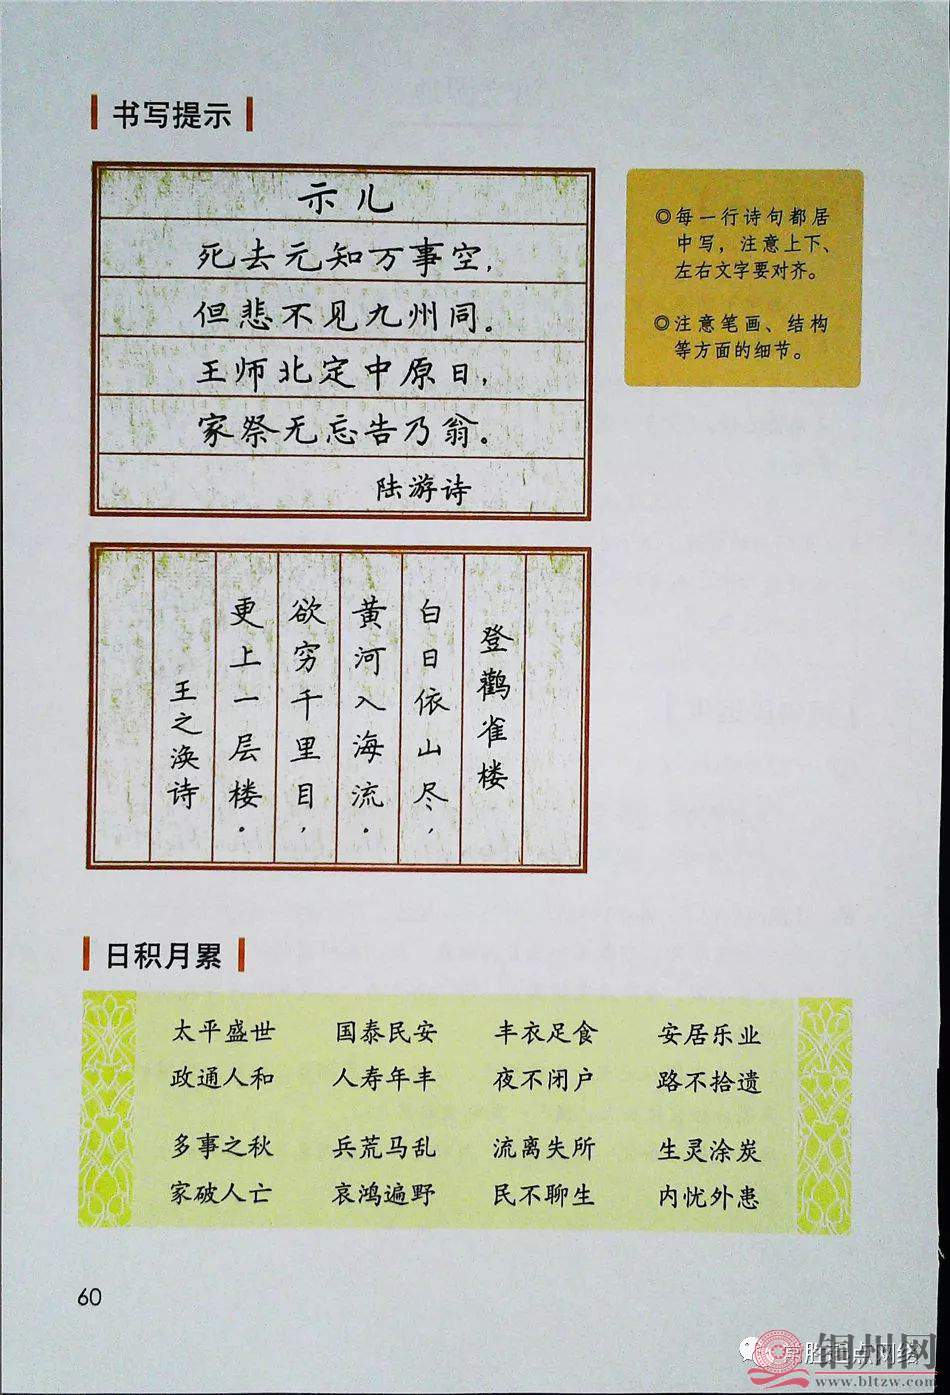 书写提示
示儿
死去元知万事空，
但悲不见九州同。
王师北定中原日，
家祭无忘告乃翁。
陆游诗
◎每一行诗句都居
中写，注意上下、
左右文字要对齐。
◎注意笔画、结构
等方面的细节。
登鹳雀楼
白日依山尽，
黄河入海流。
欲穷千里目，
更上一层楼。
王之涣诗
日积月累
太平盛世 国泰民安 丰衣足食 安居乐业
政通人和 人寿年丰 夜不闭户 路不拾遗
多事之秋 兵荒马乱 流离失所 生灵涂炭
家破人亡 哀鸿遍野 民不聊生 内忧外患
60
铜州网
www.bltzw.com